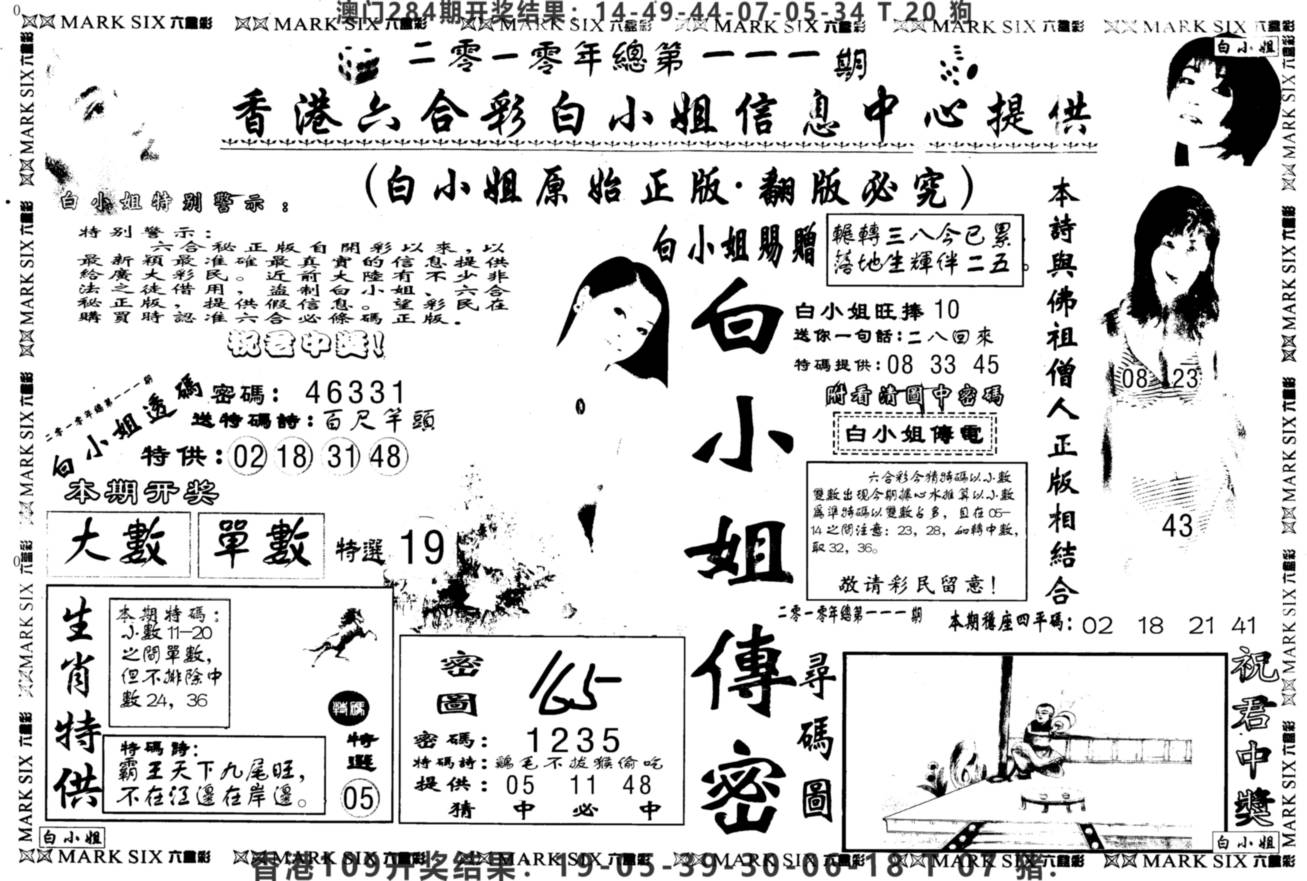 澳门284期开奖结果：14-49-44-07-05-34 T 20 狗
MARK SIX 六合彩
白小姐
二零一零年總第一一一期
香港六合彩白小姐信息中心提供
(白小姐原始正版·翻版必究)
白小姐特别警示：
特别警示：
六合秘正版自開彩以來，以
最新穎最准確最真實的信息提供
給廣大彩民。近前大陸有不少非
法之徒借用，盜制白小姐，六合
秘正版，提供假信息。望彩民在
購買時認准六合必條碼正版.
祝君中獎！
白小姐賜贈
輾轉三八今已累
落地生輝伴二五。
白小姐旺捧 10
送你一句話：二八回來
特碼提供：08 33 45
附看清圖中密碼
白小姐傳電
六合彩今猜特碼以小數
雙數出现今期據心水推算以小數
爲準特碼以雙數占多，且在05—
14之間注意：23，28，如轉中數，
取32，36。
敬请彩民留意！
二零一零年總第一一一期
白小姐透碼
密碼：46331
送特碼詩：百尺竿頭
特供：02 18 31 48
本期开奖
大數
單數
特選 19
生肖特供
本期特碼：
小數11—20
之間單數，
但不排除中
數24，36
特碼
特選
05
特碼詩：
霸王天下九尾旺，
不在江邊在岸邊。
密圖
165
密碼：1235
特碼詩：鷄毛不拔猴偷吃
提供：05 11 48
猜中必中
白小姐傳密
本詩與佛祖僧人正版相結合
08 23
43
二零一零年總第一一一期
本期穩座四平碼：02 18 21 41
尋碼圖
祝君中獎
白小姐
白小姐
MARK SIX 六合彩
香港109开奖结果：19-05-39-30-06-18 T 07 猪.